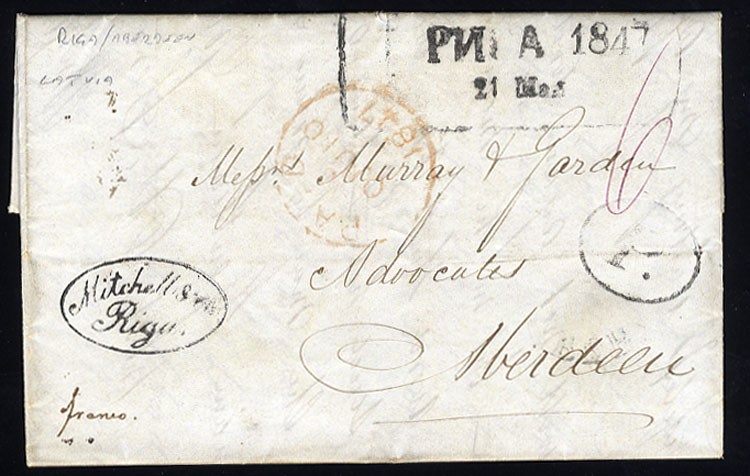 RIGA/ABERDEEN
LATVIA
РИГА 1847
21 Мая
PAID
1847
Messrs Murray & Garden
Advocates
Aberdeen
Mitchell & Co
Riga.
franco.